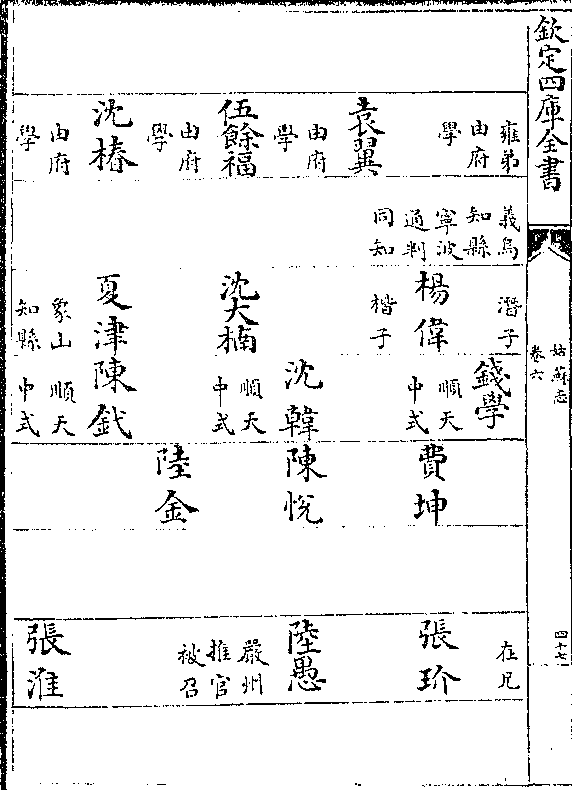 欽定四庫全書
姑蘇志
卷六
四十七
雍弟
由府
學
袁翼
由府
學
伍餘福
由府
學
沈椿
由府
學
義烏
知縣
寧波
通判
同知
潛子
楊偉
楷子
沈大楠
夏津
象山
知縣
錢學
順天
中式
沈韓
順天
中式
陳釴
順天
中式
費坤
陳悅
陸金
在兄
張玠
陸愚
嚴州
推官
被召
張淮